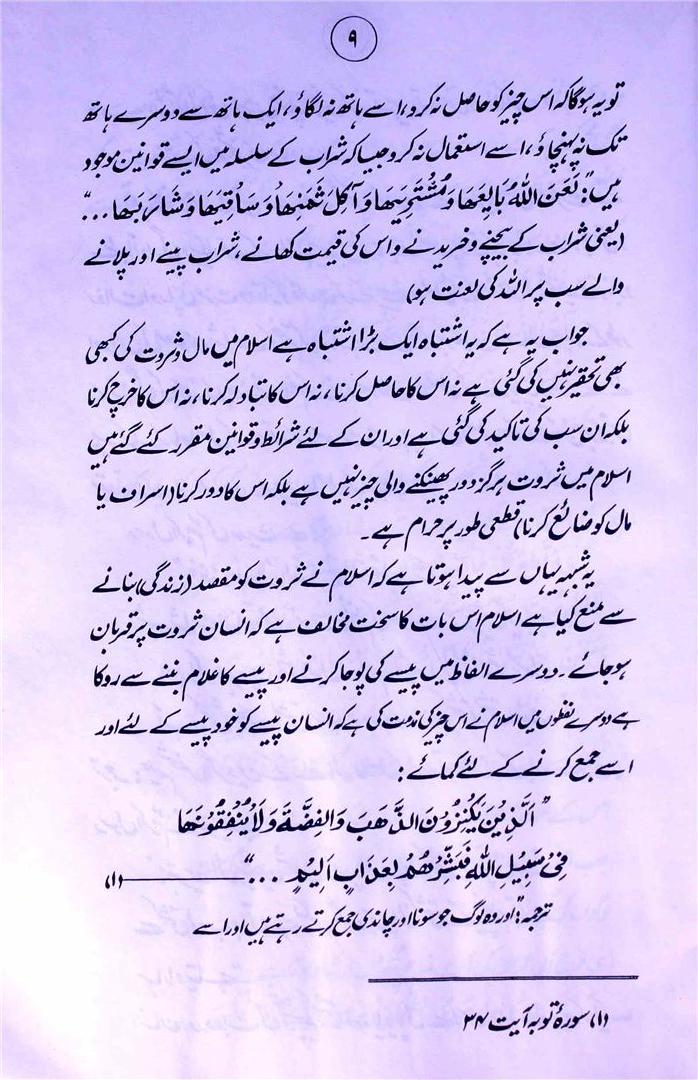 ۹
تو یہ ہوگا کہ اس چیز کو حاصل نہ کرو، اسے ہاتھ نہ لگاؤ، ایک ہاتھ سے دوسرے ہاتھ
تک نہ پہنچاؤ، اسے استعمال نہ کرو جیسا کہ شراب کے سلسلہ میں ایسے قوانین موجود
ہیں: "لَعَنَ اللّٰهُ بَايِعَهَا وَمُشْتَرِيَهَا وَآكِلَ ثَمَنِهَا وَسَاقِيَهَا وَشَارِبَهَا ..."
(یعنی شراب کے بیچنے و خریدنے و اس کی قیمت کھانے، شراب پینے اور پلانے
والے سب پر اللہ کی لعنت ہو)
جواب یہ ہے کہ یہ اشتباہ ایک بڑا اشتباہ ہے اسلام میں مال و ثروت کی کبھی
بھی تحقیر نہیں کی گئی ہے نہ اس کا حاصل کرنا، نہ اس کا تبادلہ کرنا، نہ اس کا خرچ کرنا
بلکہ ان سب کی تاکید کی گئی ہے اور ان کے لئے شرائط و قوانین مقرر کئے گئے ہیں
اسلام میں ثروت ہرگز دور پھینکنے والی چیز نہیں ہے بلکہ اس کا دور کرنا (اسراف یا
مال کو ضائع کرنا) قطعی طور پر حرام ہے۔
یہ شبہہ یہاں سے پیدا ہوتا ہے کہ اسلام نے ثروت کو مقصد (زندگی) بنانے
سے منع کیا ہے اسلام اس بات کا سخت مخالف ہے کہ انسان ثروت پر قربان
ہو جائے۔ دوسرے الفاظ میں پیسے کی پوجا کرنے اور پیسے کا غلام بننے سے روکا
ہے دوسرے لفظوں میں اسلام نے اس چیز کی مذمت کی ہے کہ انسان پیسے کو خود پیسے کے لئے اور
اسے جمع کرنے کے لئے کمائے:
"اَلَّذِيْنَ يَكْنِزُوْنَ الذَّهَبَ وَالْفِضَّةَ وَلَا يُنْفِقُوْنَهَا
فِيْ سَبِيْلِ اللّٰهِ فَبَشِّرْهُمْ بِعَذَابٍ اَلِيْمٍ ..." ـــــــــ (۱)
ترجمہ: "اور وہ لوگ جو سونا اور چاندی جمع کرتے رہتے ہیں اور اسے
(۱) سورۂ توبہ آیت ۳۴